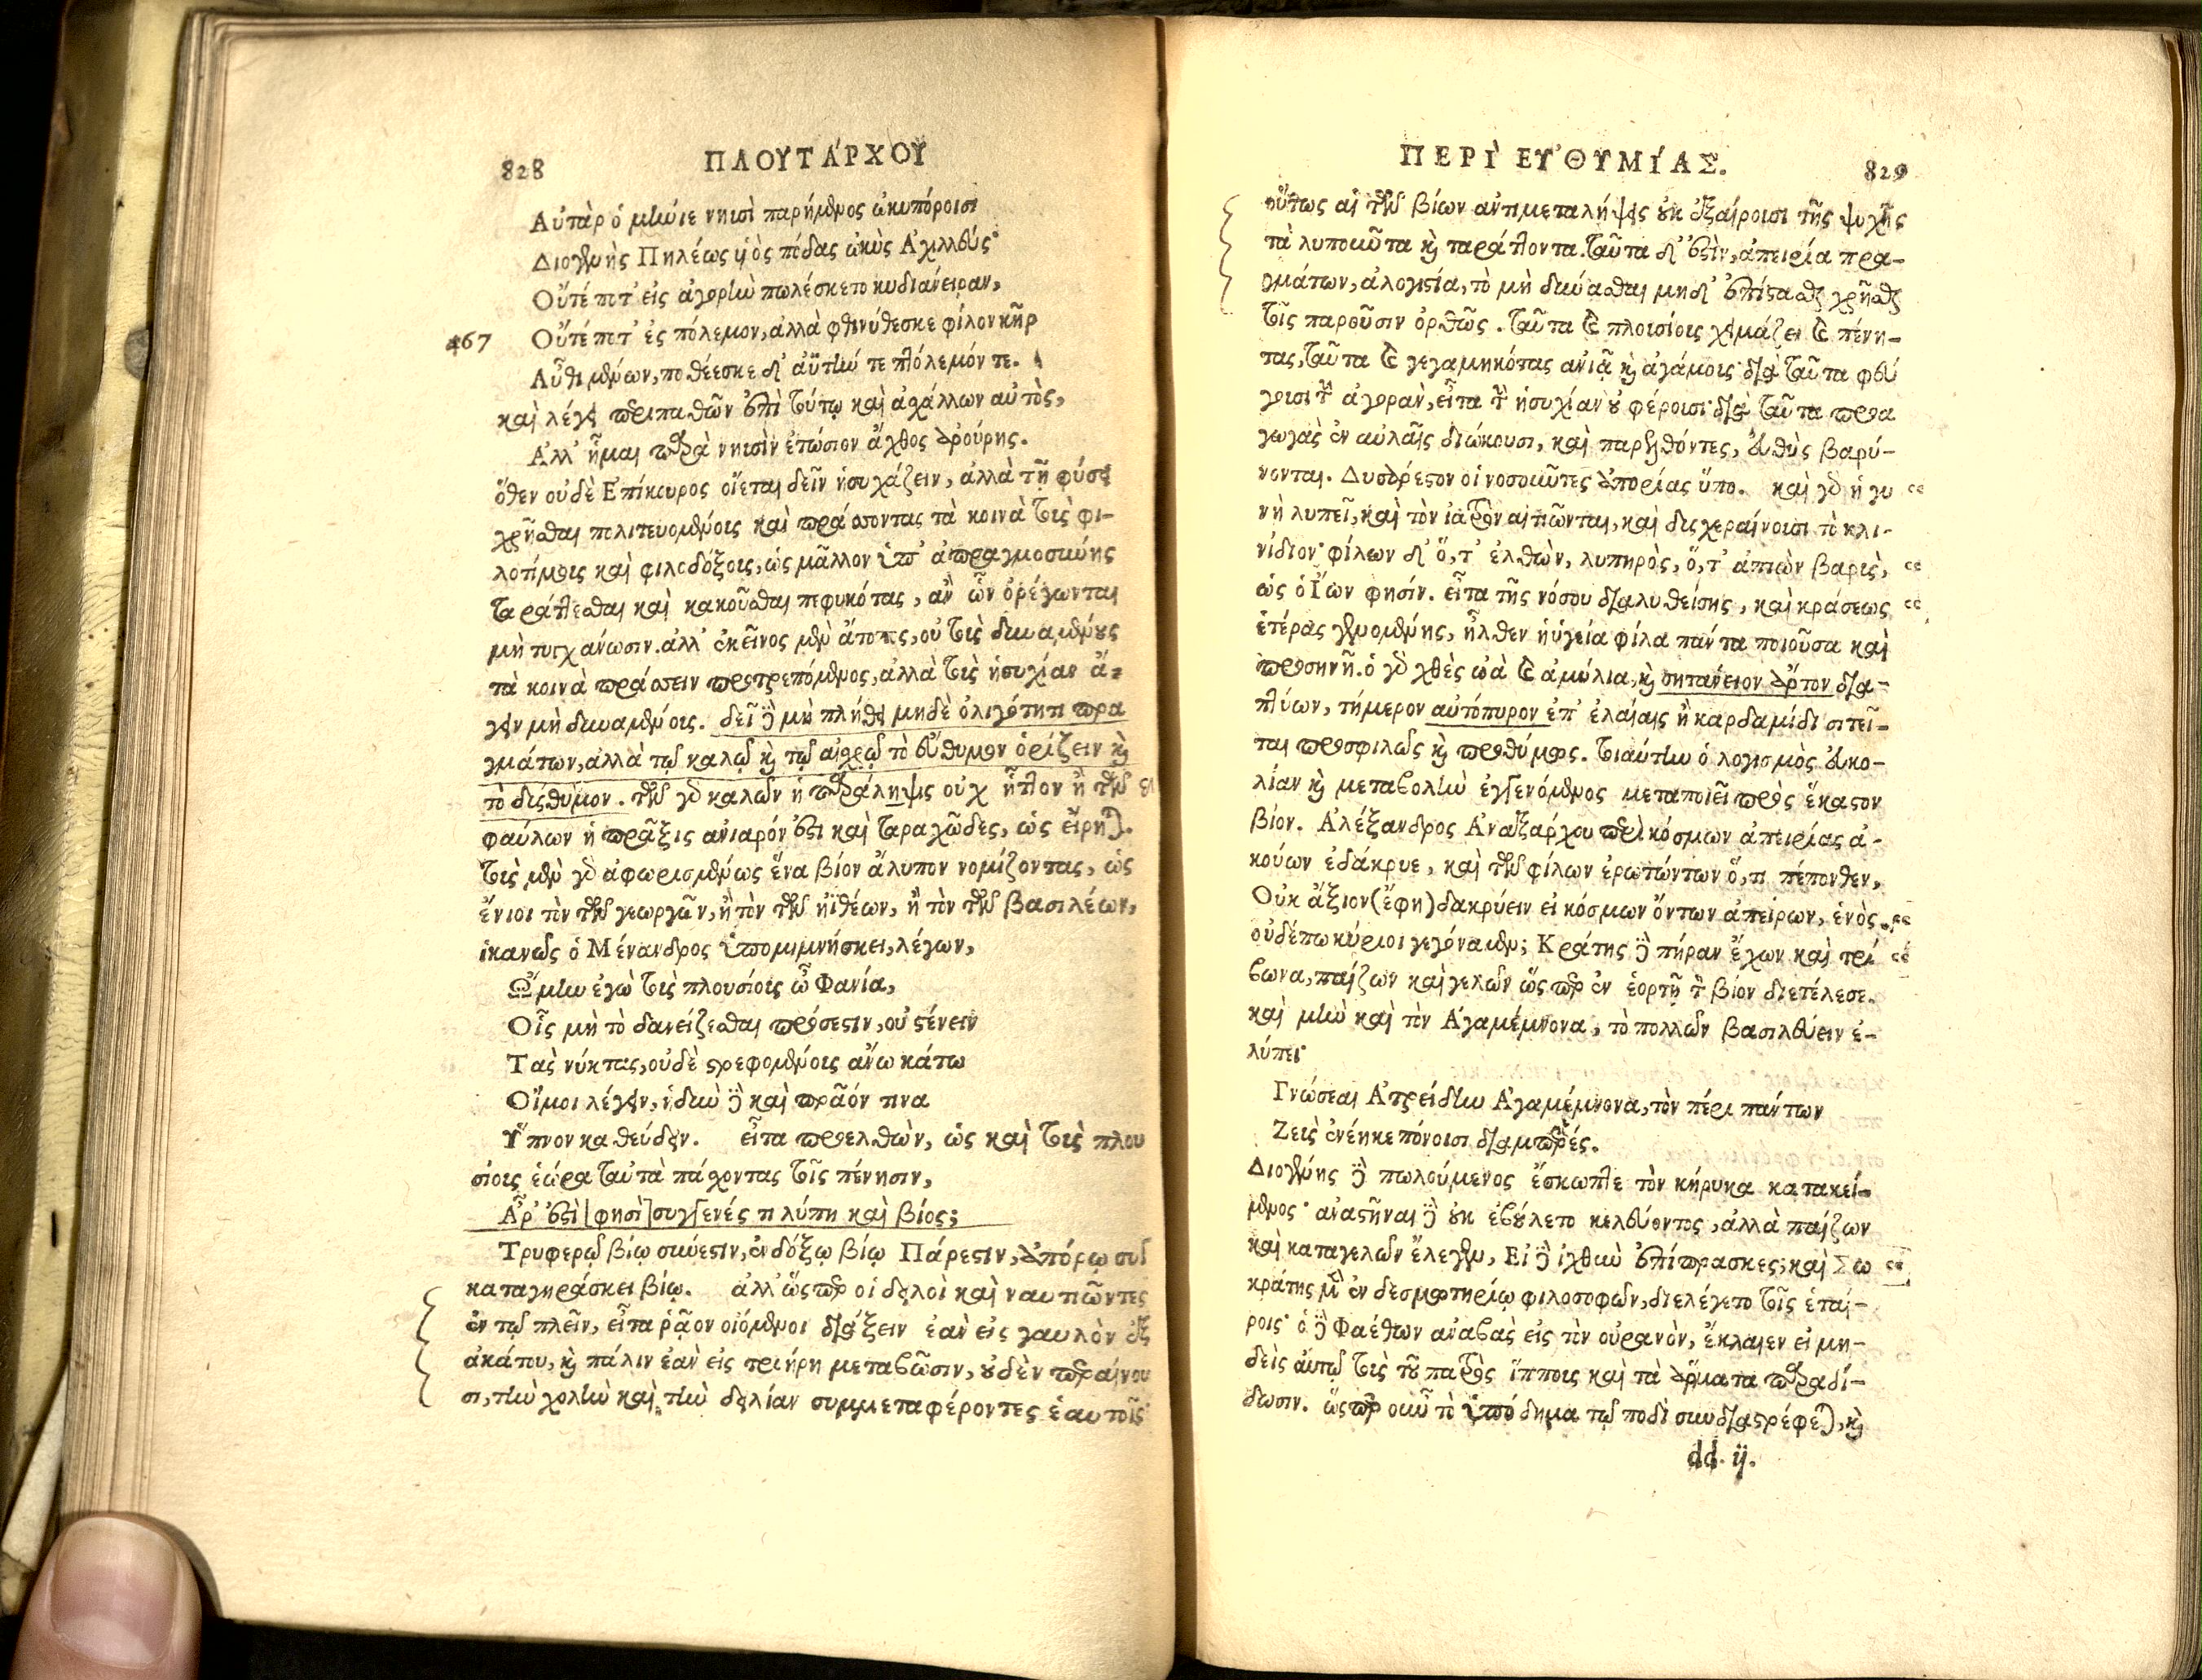 828 ΠΛΟΥΤΑΡΧΟΥ
Αὐτὰρ ὁ μήνιε νηυσὶ παρήμενος ὠκυπόροισι
Διογενὴς Πηλέως υἱὸς πόδας ὠκὺς Ἀχιλλεύς·
Οὔτέ ποτ' εἰς ἀγορὴν πωλέσκετο κυδιάνειραν,
467 Οὔτέ ποτ' ἐς πόλεμον, ἀλλὰ φθινύθεσκε φίλον κῆρ
Αὖθι μένων, ποθέεσκε δ' ἀϋτήν τε πτόλεμόν τε.
καὶ λέγει περιπαθῶν ἐπὶ τούτῳ καὶ ἀσχάλλων αὐτὸς,
Ἀλλ' ἧμαι παρὰ νηυσὶν ἐτώσιον ἄχθος ἀρούρης.
ὅθεν οὐδὲ Ἐπίκουρος οἴεται δεῖν ἡσυχάζειν, ἀλλὰ τῇ φύσει
χρῆσθαι πολιτευομένους καὶ πράσσοντας τὰ κοινὰ τοὺς φι-
λοτίμους καὶ φιλοδόξους, ὡς μᾶλλον ὑπ' ἀπραγμοσύνης
ταράττεσθαι καὶ κακοῦσθαι πεφυκότας, ἂν ὧν ὀρέγονται
μὴ τυγχάνωσιν. ἀλλ' ἐκεῖνος μὲν ἄτοπος, οὐ τοὺς δυναμένους
τὰ κοινὰ πράσσειν προτρεπόμενος, ἀλλὰ τοὺς ἡσυχίαν ἄ-
γειν μὴ δυναμένους. δεῖ δὲ μὴ πλήθει μηδὲ ὀλιγότητι πρα
γμάτων, ἀλλὰ τῷ καλῷ καὶ τῷ αἰσχρῷ τὸ εὔθυμον ὁρίζειν καὶ
τὸ δύσθυμον. τῶν γὰρ καλῶν ἡ παράληψις οὐχ ἧττον ἢ τῶν
φαύλων ἡ πρᾶξις ἀνιαρόν ἐστι καὶ ταραχῶδες, ὡς εἴρηται.
τοὺς μὲν γὰρ ἀφωρισμένως ἕνα βίον ἄλυπον νομίζοντας, ὡς
ἔνιοι τὸν τῶν γεωργῶν, ἢ τὸν τῶν ἠϊθέων, ἢ τὸν τῶν βασιλέων,
ἱκανῶς ὁ Μένανδρος ὑπομιμνήσκει, λέγων,
Ὤμην ἐγὼ τοὺς πλουσίους ὦ Φανία,
Οἷς μὴ τὸ δανείζεσθαι πρόσεστιν, οὐ στένειν
Τὰς νύκτας, οὐδὲ στρεφομένους ἄνω κάτω
Οἴμοι λέγειν, ἡδὺν δὲ καὶ πρᾶόν τινα
Ὕπνον καθεύδειν. εἶτα προελθὼν, ὡς καὶ τοὺς πλου
σίους ἑώρα ταὐτὰ πάσχοντας τοῖς πένησιν,
Ἆρ' ἐστὶ [φησὶ] συγγενές τι λύπη καὶ βίος;
Τρυφερῷ βίῳ σύνεστιν, ἐνδόξῳ βίῳ Πάρεστιν, ἀπόρῳ συγ
καταγηράσκει βίῳ. ἀλλ' ὥσπερ οἱ δειλοὶ καὶ ναυτιῶντες
ἐν τῷ πλεῖν, εἶτα ῥᾷον οἰόμενοι διάξειν ἐὰν εἰς γαυλὸν ἐξ
ἀκάτου, καὶ πάλιν ἐὰν εἰς τριήρη μεταβῶσιν, οὐδὲν περαίνου
σι, τὴν χολὴν καὶ τὴν δειλίαν συμμεταφέροντες ἑαυτοῖς·
ΠΕΡῚ ΕΥ'ΘΥΜΊΑΣ. 829
οὕτως αἱ τῶν βίων ἀντιμεταλήψεις οὐκ ἐξαίρουσι τῆς ψυχῆς
τὰ λυποῦντα καὶ ταράττοντα. ταῦτα δ' ἐστὶν, ἀπειρία πρα-
γμάτων, ἀλογιστία, τὸ μὴ δύνασθαι μηδ' ἐπίστασθαι χρῆσθαι
τοῖς παροῦσιν ὀρθῶς. ταῦτα καὶ πλουσίους χειμάζει καὶ πένη-
τας, ταῦτα καὶ γεγαμηκότας ἀνιᾷ καὶ ἀγάμους· διὰ ταῦτα φεύ
γουσι τὴν ἀγορὰν, εἶτα τὴν ἡσυχίαν οὐ φέρουσι· διὰ ταῦτα προα
γωγὰς ἐν αὐλαῖς διώκουσι, καὶ παρελθόντες, εὐθὺς βαρύ-
νονται. Δυσάρεστον οἱ νοσοῦντες ἀπορίας ὕπο. καὶ γὰρ ἡ γυ
νὴ λυπεῖ, καὶ τὸν ἰατρὸν αἰτιῶνται, καὶ δυσχεραίνουσι τὸ κλι-
νίδιον· φίλων δ' ὅ, τ' ἐλθὼν, λυπηρὸς, ὅ, τ' ἀπιὼν βαρὺς,
ὡς ὁ Ἴων φησίν. εἶτα τῆς νόσου διαλυθείσης, καὶ κράσεως
ἑτέρας γενομένης, ἦλθεν ἡ ὑγεία φίλα πάντα ποιοῦσα καὶ
προσηνῆ. ὁ γὰρ χθὲς ὠὰ καὶ ἀμύλια, καὶ σητάνειον ἄρτον δια-
πτύων, τήμερον αὐτόπυρον ἐπ' ἐλαίαις ἢ καρδαμίδι σιτεῖ-
ται προσφιλῶς καὶ προθύμως. τοιαύτην ὁ λογισμὸς εὐκο-
λίαν καὶ μεταβολὴν ἐγγενόμενος μεταποιεῖ πρὸς ἕκαστον
βίον. Ἀλέξανδρος Ἀναξάρχου περὶ κόσμων ἀπειρίας ἀ-
κούων ἐδάκρυε, καὶ τῶν φίλων ἐρωτώντων ὅ, τι πέπονθεν,
Οὐκ ἄξιον (ἔφη) δακρύειν εἰ κόσμων ὄντων ἀπείρων, ἑνὸς
οὐδέπω κύριοι γεγόναμεν; Κράτης δὲ πήραν ἔχων καὶ τρί
βωνα, παίζων καὶ γελῶν ὥσπερ ἐν ἑορτῇ τὸν βίον διετέλεσε.
καὶ μὴν καὶ τὸν Ἀγαμέμνονα, τὸ πολλῶν βασιλεύειν ἐ-
λύπει·
Γνώσεαι Ἀτρείδην Ἀγαμέμνονα, τὸν πέρι πάντων
Ζεὺς ἐνέηκε πόνοισι διαμπερές.
Διογένης δὲ πωλούμενος ἔσκωπτε τὸν κήρυκα κατακεί-
μενος· ἀναστῆναι δὲ οὐκ ἐβούλετο κελεύοντος, ἀλλὰ παίζων
καὶ καταγελῶν ἔλεγεν, Εἰ δὲ ἰχθὺν ἐπίπρασκες; καὶ Σω
κράτης μὲν ἐν δεσμωτηρίῳ φιλοσοφῶν, διελέγετο τοῖς ἑταί-
ροις· ὁ δὲ Φαέθων ἀναβὰς εἰς τὸν οὐρανὸν, ἔκλαιεν εἰ μη-
δεὶς αὐτῷ τοὺς τοῦ πατρὸς ἵππους καὶ τὰ ἅρματα παραδί-
δωσιν. ὥσπερ οὖν τὸ ὑπόδημα τῷ ποδὶ συνδιαστρέφεται, καὶ
dd. ij.